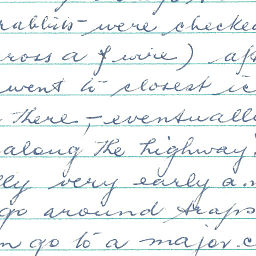 rabbits were checked
ross a f wire) aft
went to closest ic
there, – eventually
along the highway
lly very early a.m
go around traps
n go to a major c